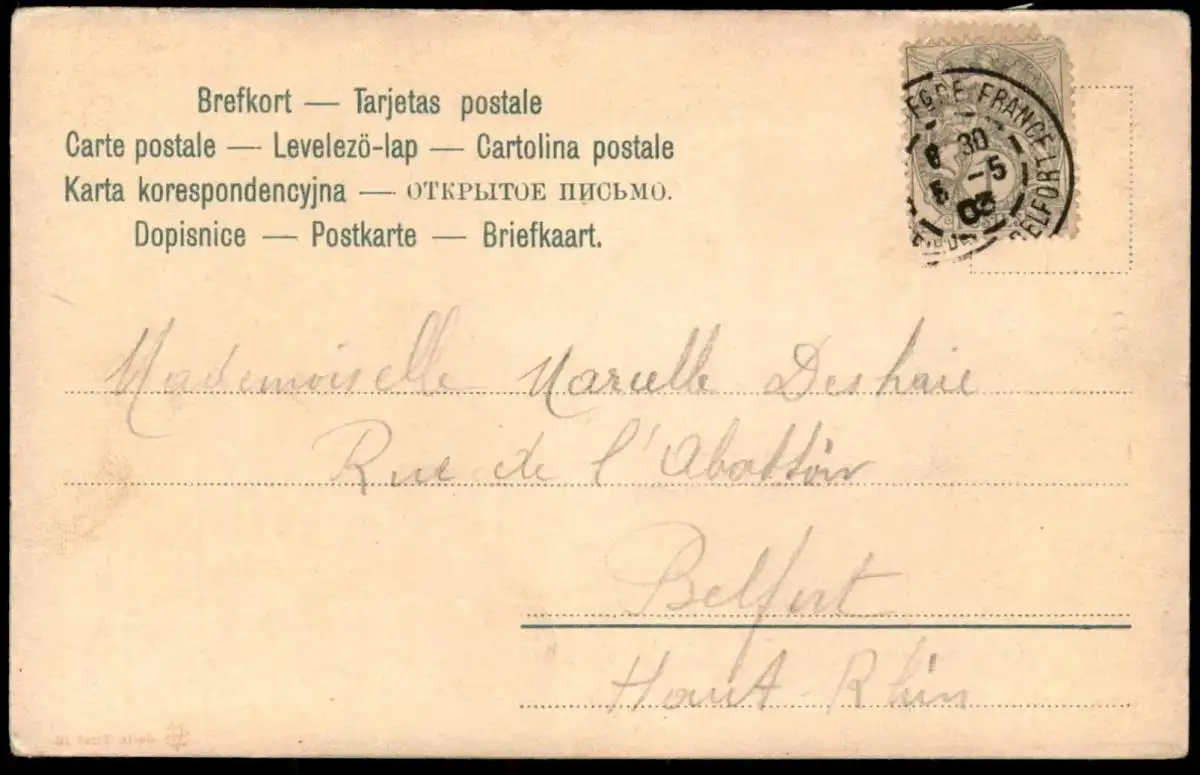 Brefkort — Tarjetas postale
Carte postale — Levelezö-lap — Cartolina postale
Karta korespondencyjna — ОТКРЫТОЕ ПИСЬМО.
Dopisnice — Postkarte — Briefkaart.
FRANCE BELFORT
30
-5
03
Mademoiselle Marcelle Deshaie
Rue de l'Abattoir
Belfort
Haut-Rhin